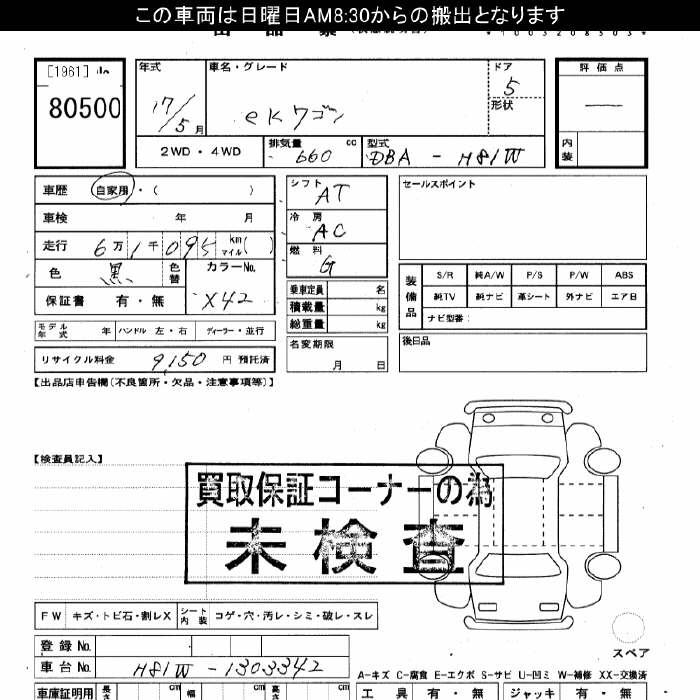 この車両は日曜日AM8:30からの搬出となります
*1003208503*
[1961]
80500
年式
17/5月
車名・グレード
ekワゴン
ドア
5
形状
評価点
―
内装
2WD・4WD
排気量 660 cc
型式 DBA - H81W
車歴 自家用・( )
車検 年 月
走行 6万1千095 km マイル( )
色 黒 色替
カラーNo. X42
保証書 有・無
シフト AT
冷房 AC
燃料 G
乗車定員 名
積載量 kg
総重量 kg
名変期限 月 日
セールスポイント
装備品
S/R 純A/W P/S P/W ABS
純TV 純ナビ 革シート 外ナビ エア日
ナビ型番:
後日品
モデル年式 年 ハンドル 左・右 ディーラー・並行
リサイクル料金 9,150 円 預託済
【出品店申告欄(不良箇所・欠品・注意事項等)】
【検査員記入】
買取保証コーナーの為
未検査
FW キズ・トビ石・割レX シート内装 コゲ・穴・汚レ・シミ・破レ・スレ
スペア
登録No.
車台No. H81W - 1303342
A-キズ C-腐食 E-エクボ S-サビ U-凹ミ W-補修 XX-交換済
車庫証明用 長さ cm 幅 cm 高さ cm
工具 有・無 ジャッキ 有・無